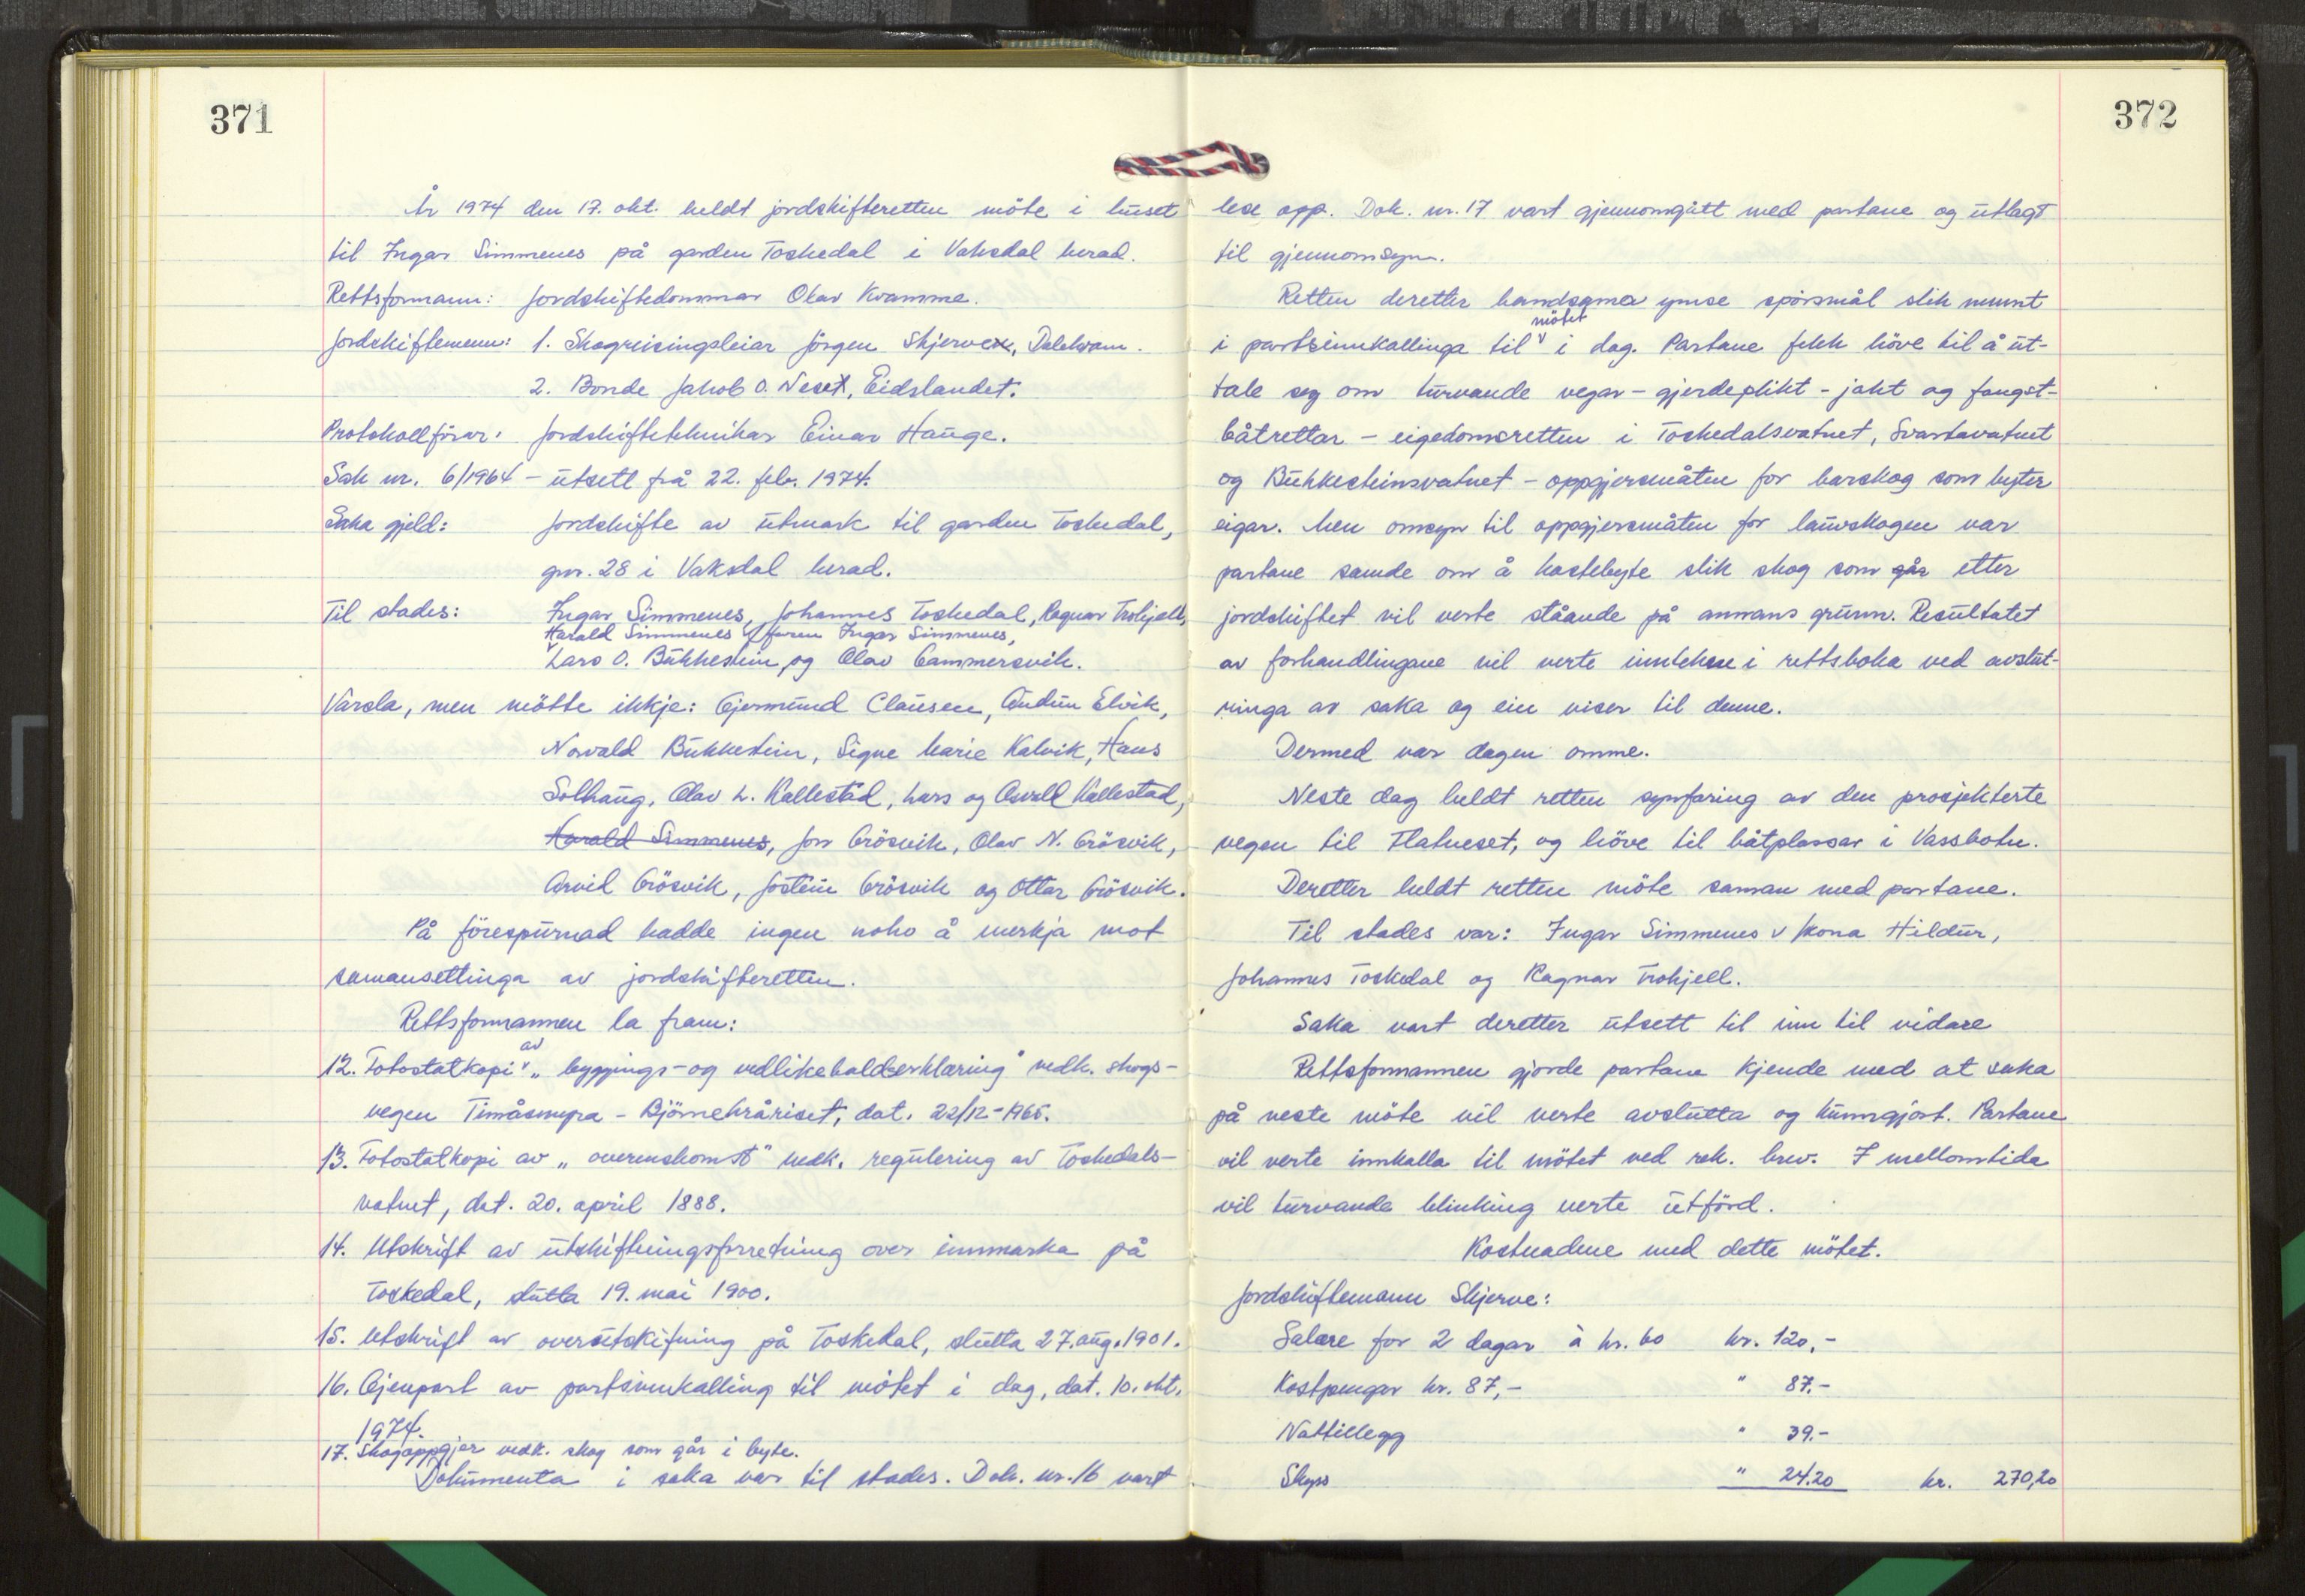 371
År 1974 den 17. okt. heldt jordskifteretten möte i huset
til Ingar Simmenes på garden Toskedal i Vaksdal herad.
Rettsformann: Jordskiftedommar Olav Kvamme.
Jordskiftemenn: 1. Skogreisingsleiar Jörgen Skjerve, Dalekvam.
2. Bonde Jakob O. Neset, Eidslandet.
Protokollförar: Jordskifteteknikar Einar Hauge.
Sak nr. 6/1964 - utsett frå 22. feb. 1974.
Saka gjeld: Jordskifte av utmark til garden Toskedal,
gnr. 28 i Vaksdal herad.
Til stades: Ingar Simmenes, Johannes Toskedal, Ragnar Trohjell,
Harald Simmenes v/faren Ingar Simmenes,
Lars O. Bukkestein og Olav Cammersvik.
Varsla, men mötte ikkje: Gjermund Clausen, Audun Elvik,
Norvald Bukkestein, Signe Marie Kalvik, Hans
Solhaug, Olav L. Kallestad, Lars og Asvall Kallestad,
Harald Simmenes, Jon Grösvik, Olav N. Grösvik,
Arvid Grösvik, Jostein Grösvik og Ottar Grösvik.
På förespurnad hadde ingen noko å merkja mot
samansettinga av jordskifteretten.
Rettsformannen la fram:
12. Fotostatkopi av „byggings- og vedlikehaldserklæring" vedk. skogs-
vegen Timåsmyra - Björnehråriset, dat. 22/12-1965.
13. Fotostatkopi av „overenskomst" vedk. regulering av Toskedals-
vatnet, dat. 20. april 1888.
14. Utskrift av utskiftningsforretning over innmarka på
Toskedal, slutta 19. mai 1900.
15. Utskrift av overutskifning på Toskedal, slutta 27. aug. 1901.
16. Gjenpart av partsinnkalling til mötet i dag, dat. 10. okt.
1974.
17. Skogoppgjer vedk. skog som går i byte.
Dokumenta i saka var til stades. Dok. nr. 16 vart
372
lese opp. Dok. nr. 17 vart gjennomgått med partane og utlagt
til gjennomsyn.
Retten deretter handsama ymse spörsmål slik nemnt
i partsinnkallinga til mötet i dag. Partane fekk höve til å ut-
tale seg om turvande vegar - gjerdeplikt - jakt og fangst-
båtrettar - eigedomsretten i Toskedalsvatnet, Svartavatnet
og Bukkesteinsvatnet - oppgjersmåten for barskog som byter
eigar. Men omsyn til oppgjersmåten for lauvskogen var
partane samde om å hostebyte slik skog som går etter
jordskiftet vil verte ståande på annans grunn. Resultatet
av forhandlingane vil verte innteke i rettsboka ved avslut-
ninga av saka og ein viser til denne.
Dermed var dagen omme.
Neste dag heldt retten synfaring av den prosjekterte
vegen til Flatneset, og höve til båtplassar i Vassbotn.
Deretter heldt retten möte saman med partane.
Til stades var: Ingar Simmenes v/kona Hildur,
Johannes Toskedal og Ragnar Trohjell.
Saka vart deretter utsett til inn til vidare
Rettsformannen gjorde partane kjende med at saka
på neste möte vil verte avslutta og kunngjort. Partane
vil verte innkalla til mötet ved rek. brev. I mellomtida
vil turvande blinking verte utförd.
Kostnadene med dette mötet.
Jordskiftemann Skjerve:
Salære for 2 dagar à kr. 60 kr. 120,-
Kostpengar kr. 87,- " 87,-
Nattillegg " 39.-
Skyss " 24.20 kr. 270,20